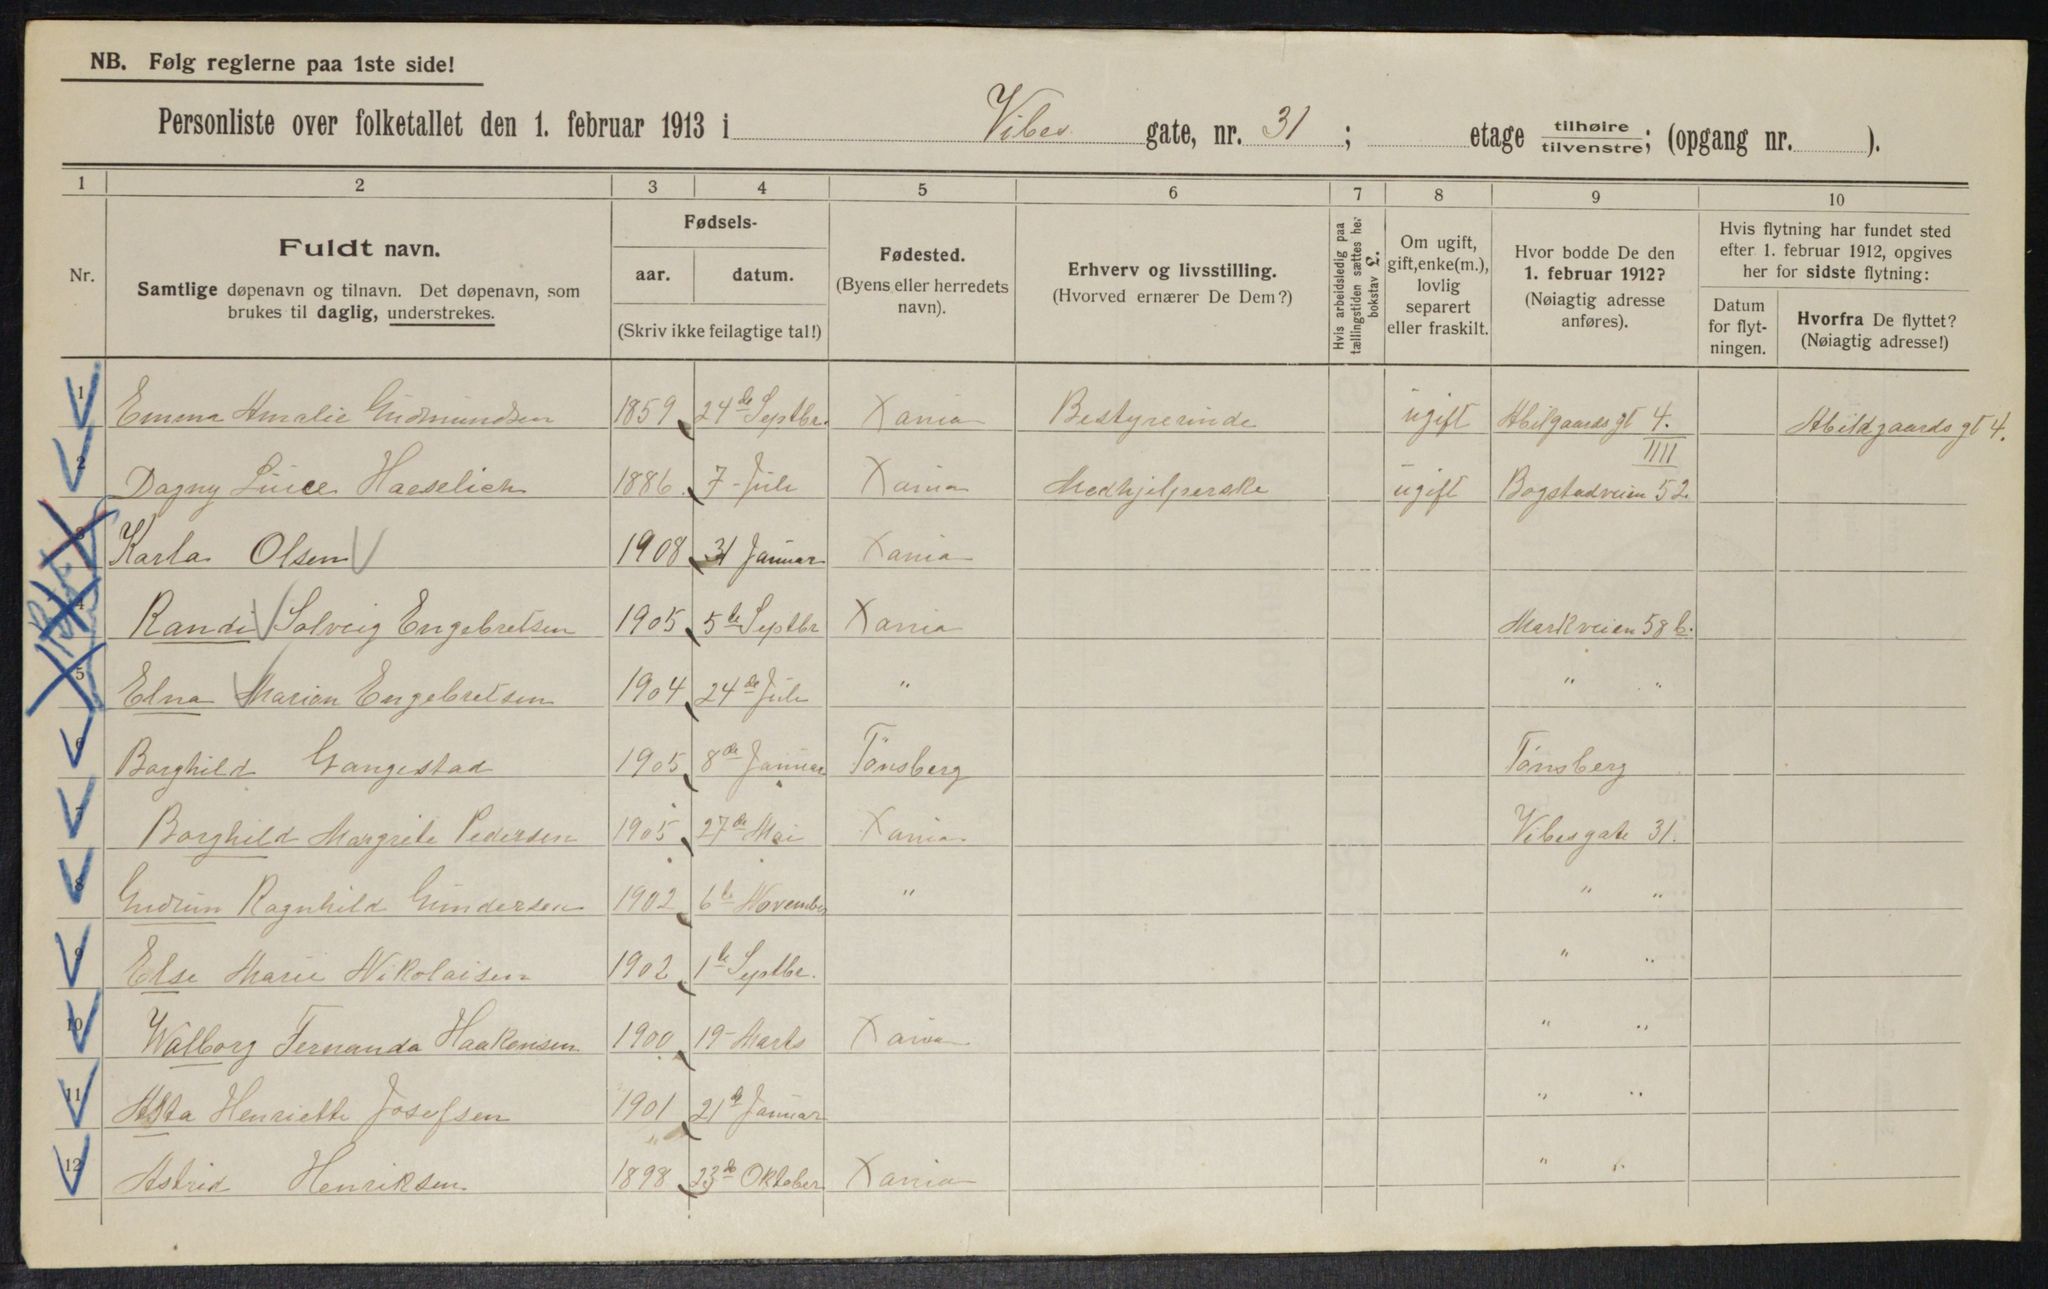 NB. Følg reglerne paa 1ste side!
Personliste over folketallet den 1. februar 1913 i Vibes gate, nr. 31 ; etage tilhøire tilvenstre; (opgang nr. ).
1 2 3 4 5 6 7 8 9 10
Nr.
Fuldt navn.
Samtlige døpenavn og tilnavn. Det døpenavn, som
brukes til daglig, understrekes.
Fødsels-
aar. datum.
(Skriv ikke feilagtige tal!)
Fødested.
(Byens eller herredets
navn).
Erhverv og livsstilling.
(Hvorved ernærer De Dem?)
Hvis arbeidsledig paa
tællingstiden sættes her
bokstav L.
Om ugift,
gift, enke(m.),
lovlig
separert
eller fraskilt.
Hvor bodde De den
1. februar 1912?
(Nøiagtig adresse
anføres).
Hvis flytning har fundet sted
efter 1. februar 1912, opgives
her for sidste flytning:
Datum
for flyt-
ningen.
Hvorfra De flyttet?
(Nøiagtig adresse!)
1 Emma Amalie Gudmundsen 1859 24de Septbr. Xania Bestyrerinde ugift Abilgaards gt 4. Abildgaards gt 4.
IIII
2 Dagny Luice Haeselich 1886 7 - Juli Xania Medhjelperske ugift Bogstadveien 52.
3 Karla Olsen 1908 31 Januar Xania
4 Randi Solveig Engebretsen 1905 5te Septbr Xania Markveien 58 b.
5 Elna Marion Engebretsen 1904 24de Juli " " "
6 Borghild Gangestad 1905 8de Januar Tönsberg Tönsberg
7 Borghild Margrete Pedersen 1905 27de Mai Xania Vibesgate 31.
8 Gudrun Ragnhild Gundersen 1902 6te November " " "
9 Else Marie Nikolaisen 1902 1te Septbr. " "
10 Walborg Fernanda Haakonsen 1900 19 - Marts Xania " "
11 Asta Henriette Josefsen 1901 21de Januar " "
12 Astrid Henriksen 1898 23de Oktober Xania " "